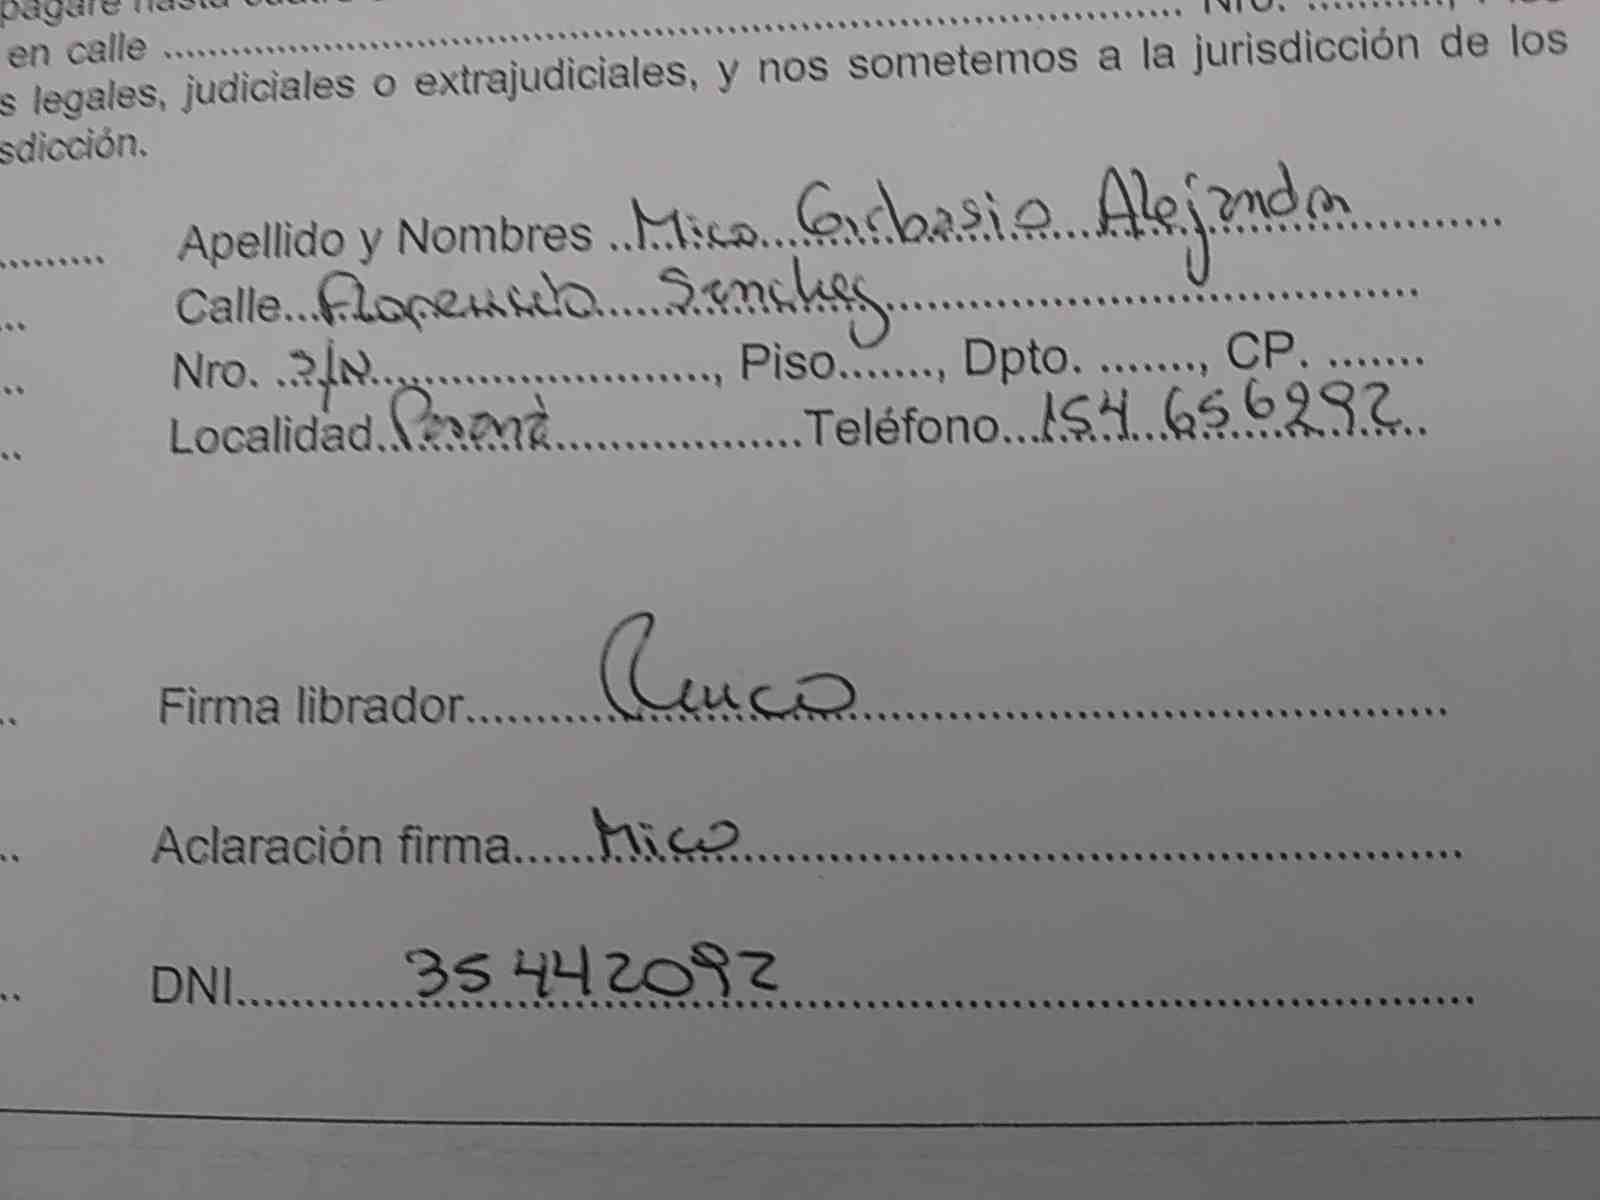 pagaré hasta
en calle ........ Nro. ........,
s legales, judiciales o extrajudiciales, y nos sometemos a la jurisdicción de los
sdicción.
Apellido y Nombres Mico Alejandro
Calle Florencio Sanchez
Nro. S/N, Piso......., Dpto. ......., CP. .......
Localidad Paraná Teléfono 154 656292
Firma librador
Aclaración firma Mico
DNI 35442092